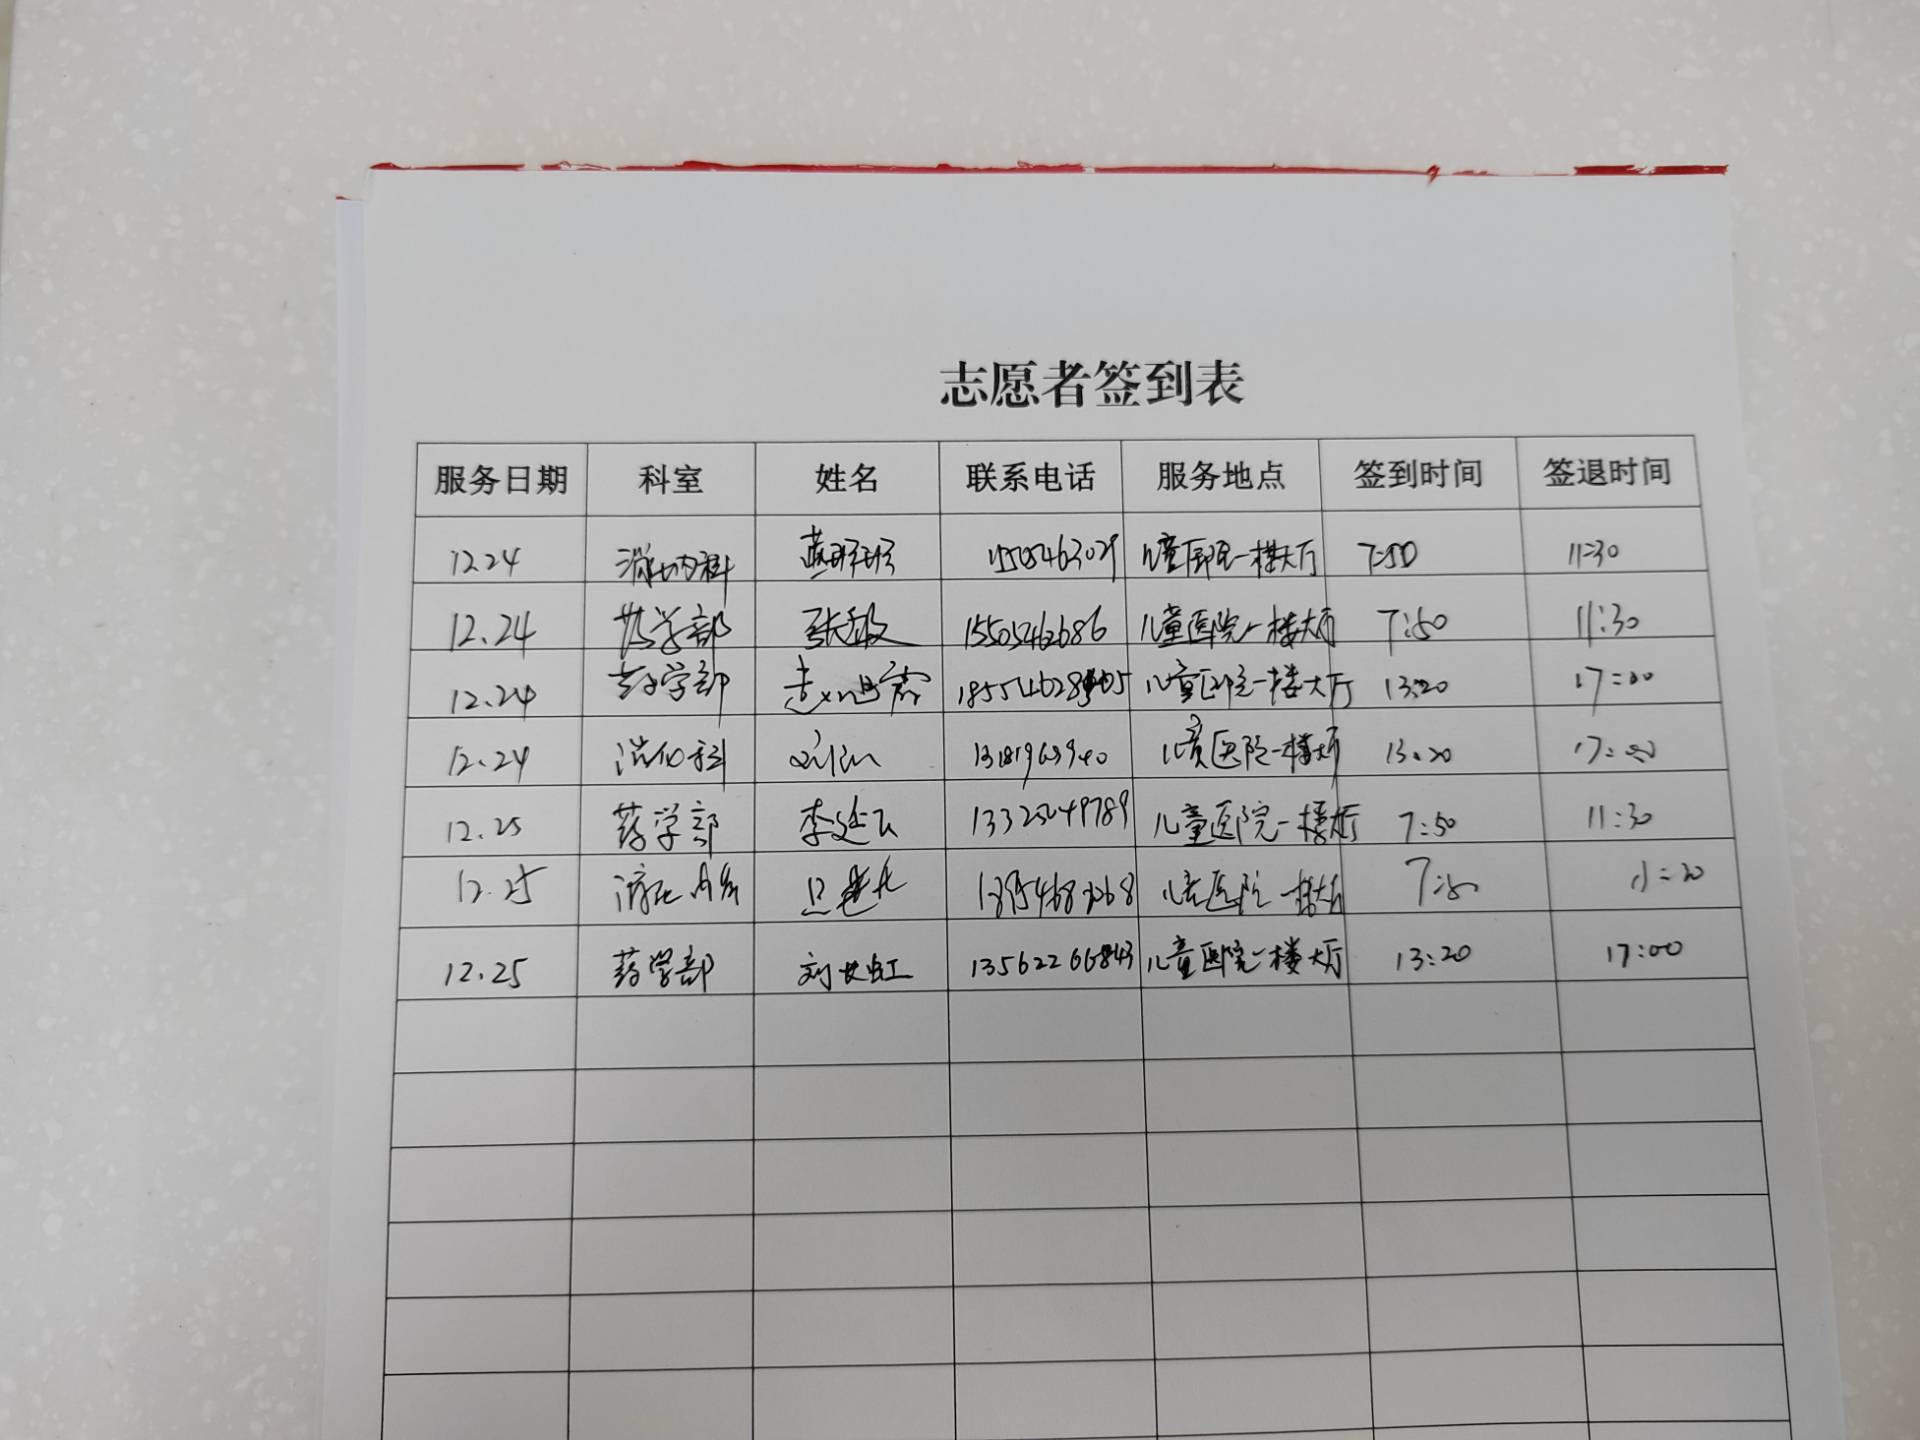 志愿者签到表
服务日期 科室 姓名 联系电话 服务地点 签到时间 签退时间
12.24 消化内科 儿童医院一楼大厅 7:50 11:30
12.24 药学部 张敏 15505462686 儿童医院一楼大厅 7:50 11:30
12.24 药学部 儿童医院一楼大厅 13:20 17:00
12.24 消化科 儿童医院一楼大厅 13:20 17:00
12.25 药学部 李延云 儿童医院一楼大厅 7:50 11:30
12.25 消化内科 儿童医院一楼大厅 7:50 11:30
12.25 药学部 刘长虹 13562266843 儿童医院一楼大厅 13:20 17:00